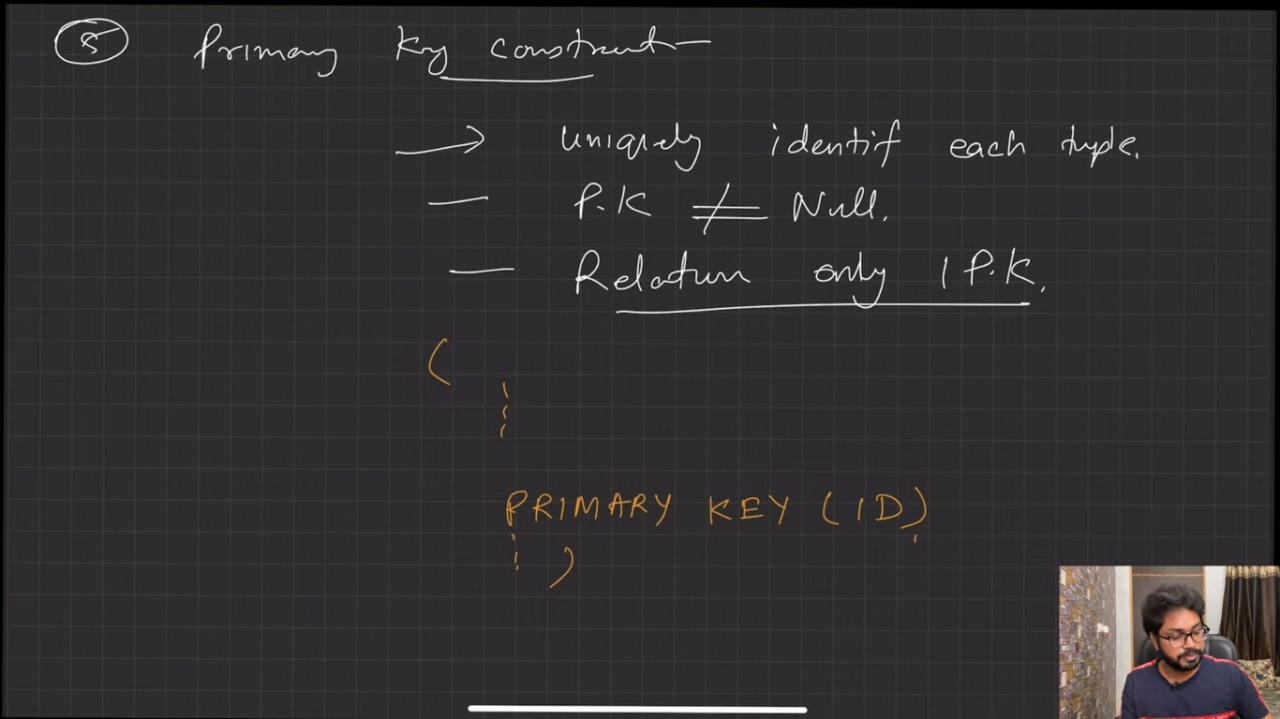 (5) Primary Key constraint
→ uniquely identify each tuple.
— P.K ≠ Null.
— Relation only 1 P.K.
(
PRIMARY KEY (ID)
)